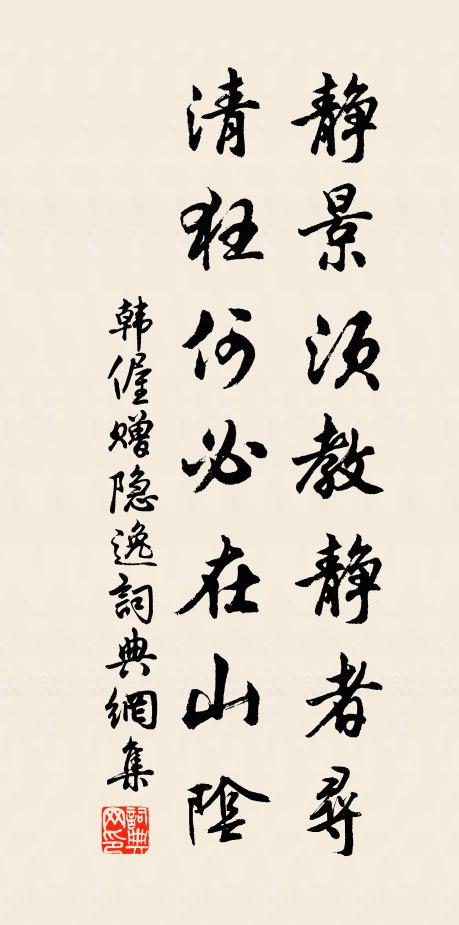 静景须教静者尋
清狂何必在山陰
韩偓赠隐逸詞典網集
詞典网印